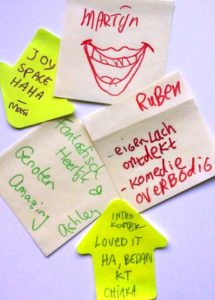 MARTIJN
JOY
SPACE
HAHA
RUBEN
- eigen Lach
ontdekt
- komedie
OVERBODIG
Fantastisch
Heerlijk
Genoten
Amazing
Ashley
INTRO
LOVED IT
HA, BEDAN
KT
CHIARA